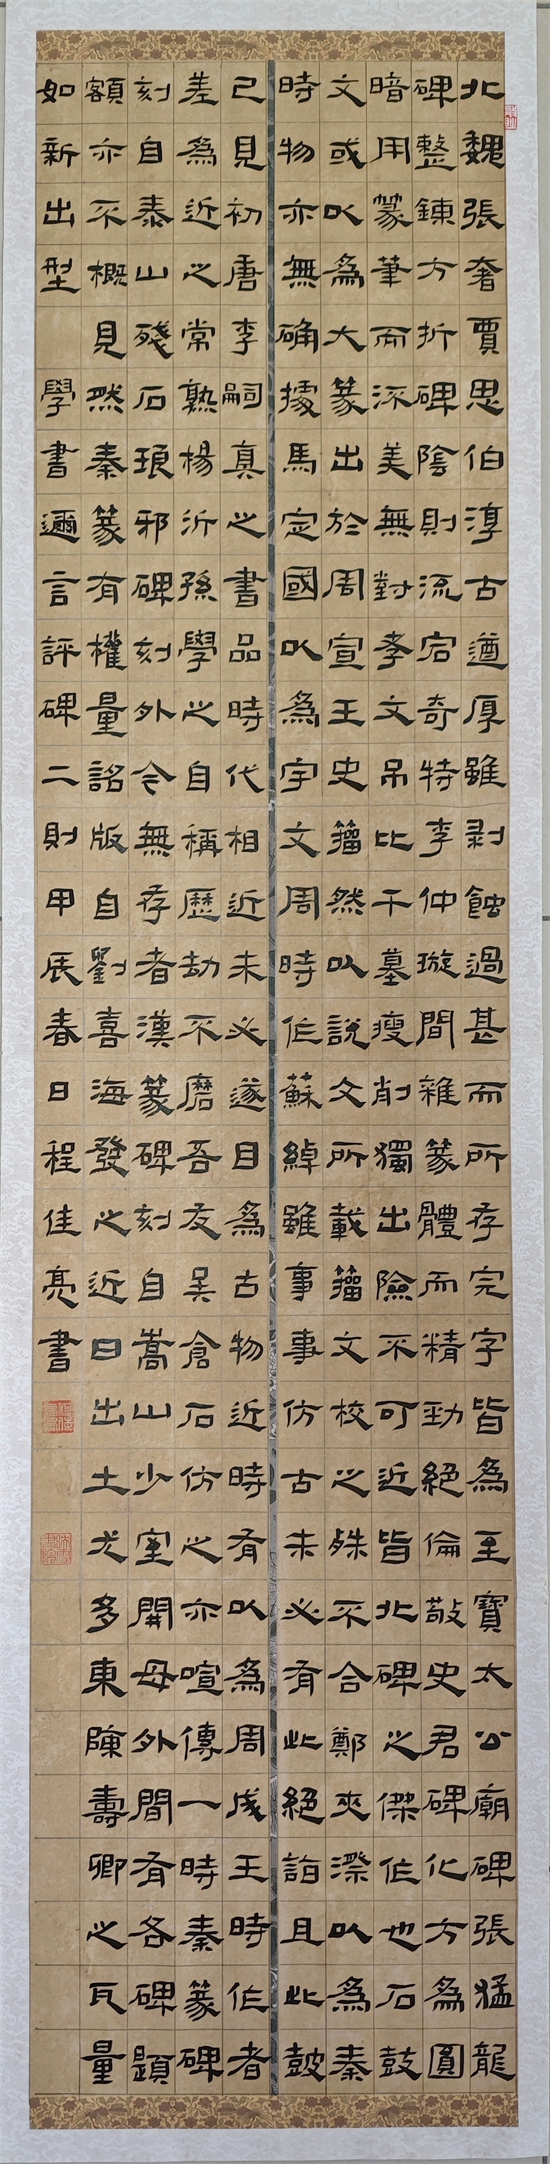 北魏張奢賈思伯淳古遒厚雖剥蝕過甚而所存完字皆為至寶太公廟碑張猛龍
碑整鍊方折碑陰則流宕奇特李仲璇間雜篆體而精勁絕倫敬史君碑化方為圓
暗用篆筆而沃美無對孝文吊比干墓瘦削獨出險不可近皆北碑之傑作也石鼓
文或以為大篆出於周宣王史籀然以說文所載籀文校之殊不合鄭夾漈以為秦
時物亦無确據馬定國以為宇文周時作蘇綽雖事事仿古未必有此絕詣且此皷
已見初唐李嗣真之書品時代相近未必遂目為古物近時有以為周成王時作者
差為近之常熟楊沂孫學之自稱歷劫不磨吾友吴倉石仿之亦喧傳一時秦篆碑
刻自泰山殘石琅邪碑刻外今無存者漢篆碑刻自嵩山少室開母外間有各碑題
額亦不概見然秦篆有權量詔版自劉喜海發之近日出土尤多東陳壽卿之瓦量
如新出型 學書邇言評碑二則甲辰春日程佳亮書